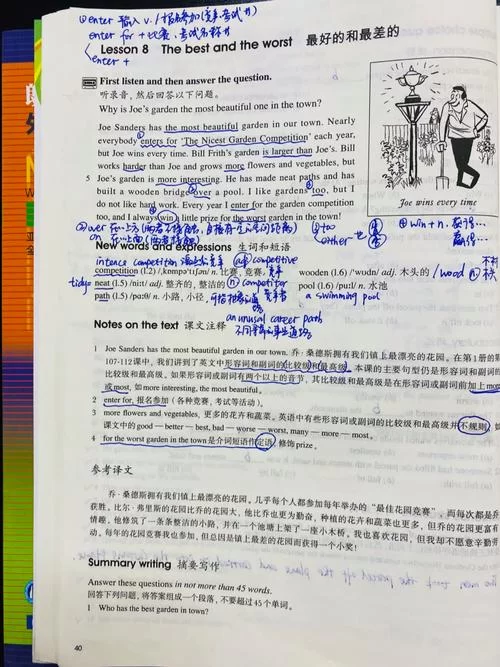 ① enter 输入 v. / 报名参加(竞赛.考试等)
enter for + 比赛、考试名称等
enter +
Lesson 8 The best and the worst 最好的和最差的
First listen and then answer the question.
听录音，然后回答以下问题。
Why is Joe's garden the most beautiful one in the town?
Joe Sanders has the most beautiful garden in our town. Nearly
everybody enters for 'The Nicest Garden Competition' each year,
but Joe wins every time. Bill Frith's garden is larger than Joe's. Bill
works harder than Joe and grows more flowers and vegetables, but
5 Joe's garden is more interesting. He has made neat paths and has
built a wooden bridge over a pool. I like gardens too, but I
do not like hard work. Every year I enter for the garden competition
too, and I always win a little prize for the worst garden in the town!
Joe wins every time
③ too
other 也
④ win + n.
New words and expressions 生词和短语
competitive
competition (l.2) /ˌkɒmpəˈtɪʃən/ n. 比赛，竞赛
tidy
neat (l.5) /niːt/ adj. 整齐的，整洁的
n competitor
path (l.5) /pɑːθ/ n. 小路，小径
wooden (l.6) /ˈwʊdn/ adj. 木头的
wood n
pool (l.6) /puːl/ n. 水池
a swimming pool
an unusual career path
Notes on the text 课文注释
1 Joe Sanders has the most beautiful garden in our town. 乔·桑德斯拥有我们镇上最漂亮的花园。在第1册的第
107-112课中，我们讲到了英文中形容词和副词的比较级和最高级。本课的主要句型仍是形容词和副词的
比较级与最高级。如果形容词或副词有两个以上的音节，其比较级和最高级是在形容词或副词前加上more
或most, 如more interesting, the most beautiful。
2 enter for, 报名参加（各种竞赛，考试等活动）。
3 more flowers and vegetables, 更多的花卉和蔬菜。英语中有些形容词或副词的比较级和最高级并不规则，如
课文中的good — better — best, bad — worse — worst, many — more — most。
4 for the worst garden in the town是介词短语作定语，修饰prize。
参考译文
乔·桑德斯拥有我们镇上最漂亮的花园。几乎每个人都参加每年举办的“最佳花园竞赛”，而每次都是乔
获胜。比尔·弗里斯的花园比乔的花园大，他比乔也更为勤奋，种植的花卉和蔬菜也更多，但乔的花园更富有
情趣。他修筑了一条条整洁的小路，并在一个池塘上架了一座小木桥。我也喜欢花园，但我却不愿意辛勤劳
动。每年的花园竞赛我也参加，但总因是镇上最差的花园而获得一个小奖！
Summary writing 摘要写作
Answer these questions in not more than 45 words.
回答下列问题，将答案组成一个段落，不要超过45个单词。
1 Who has the best garden in town?
40